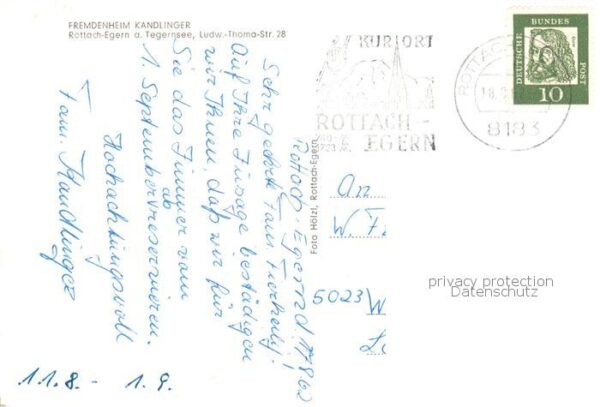 FREMDENHEIM KANDLINGER
Rottach-Egern a. Tegernsee, Ludw.-Thoma-Str. 28
Rottach-Egern, d. 17.8.62
Sehr geehrte Fam.
Auf Ihre Zusage bestädigen
wir Ihnen, daß wir für
Sie das Zimmer vom
ab
1. September reservieren.
Hochachtungsvoll
Fam. Kandlinger
11.8. - 1.9.
Foto Hölzl, Rottach-Egern
KURORT
ROTTACH-
EGERN
ROTTACH
8183
DEUTSCHE
BUNDES
POST
10
An
W. F
5023 W
privacy protection
Datenschutz